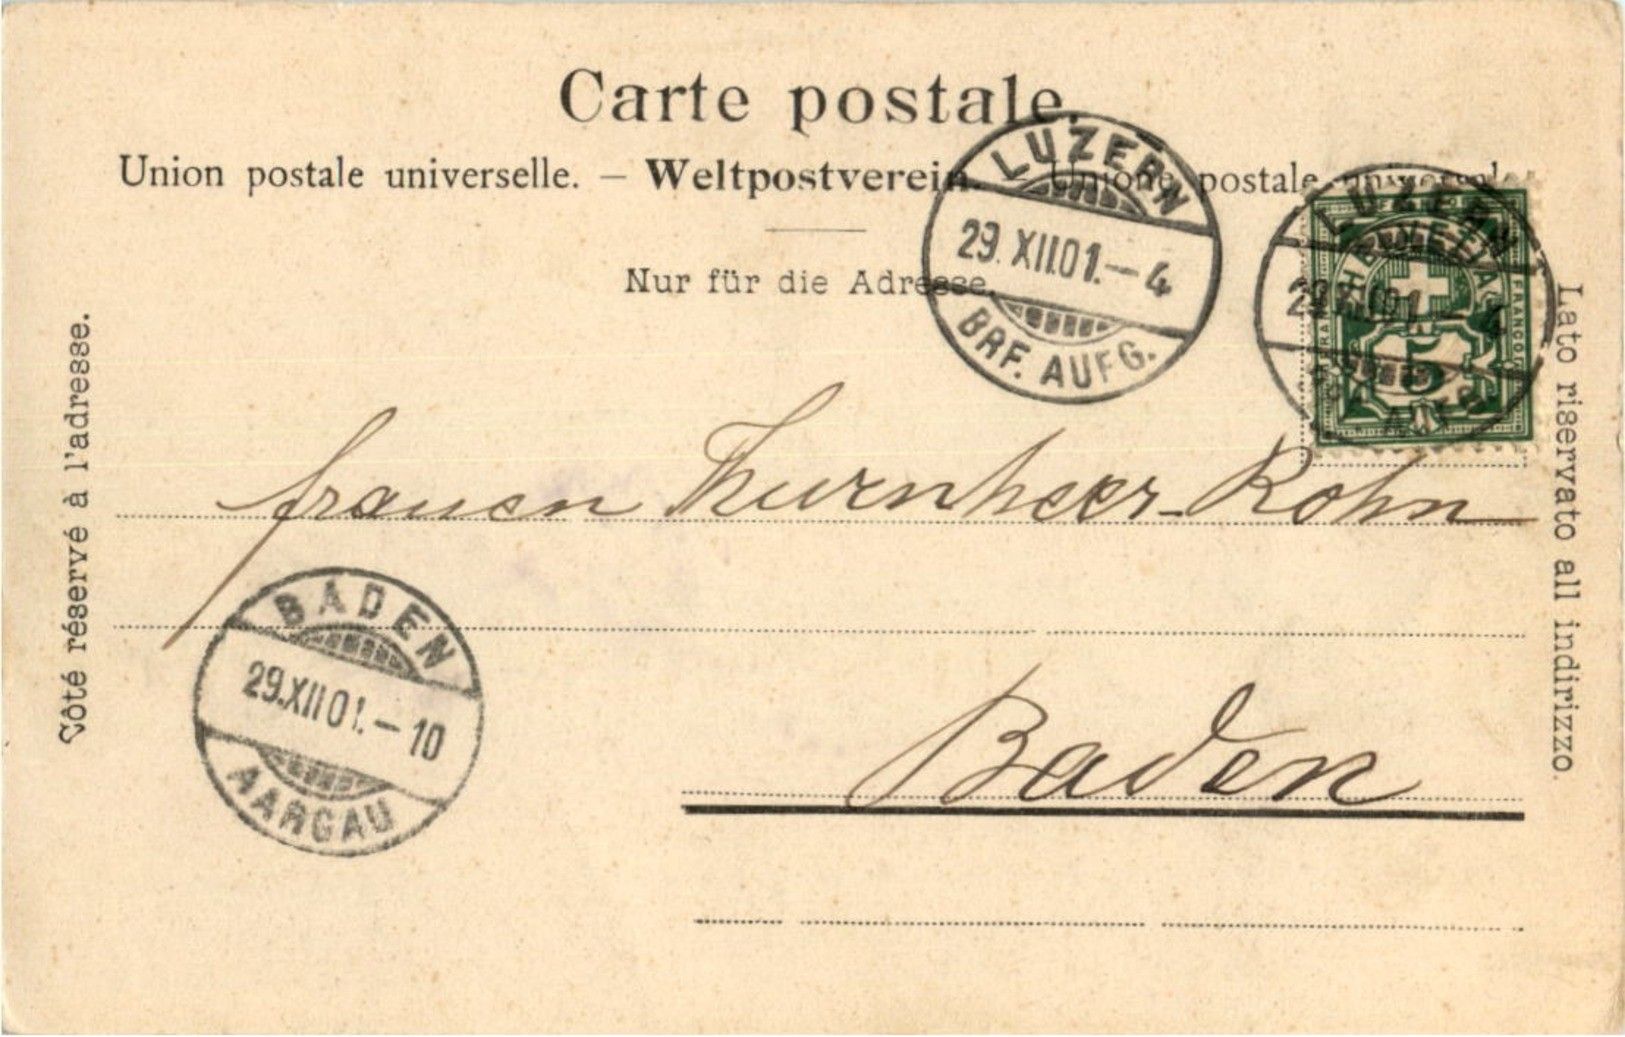 Carte postale.
Union postale universelle. — Weltpostverein. — Unione postale universale
Nur für die Adresse.
Côté réservé à l'adresse.
Lato riservato all indirizzo.
LUZERN
29.XII.01.—4
BRF. AUFG.
LUZERN
29.XII.01.—4
HELVETIA
FRANCO
5
frauen Thurnheer-Rohn
BADEN
29.XII01.—10
AARGAU
Baden